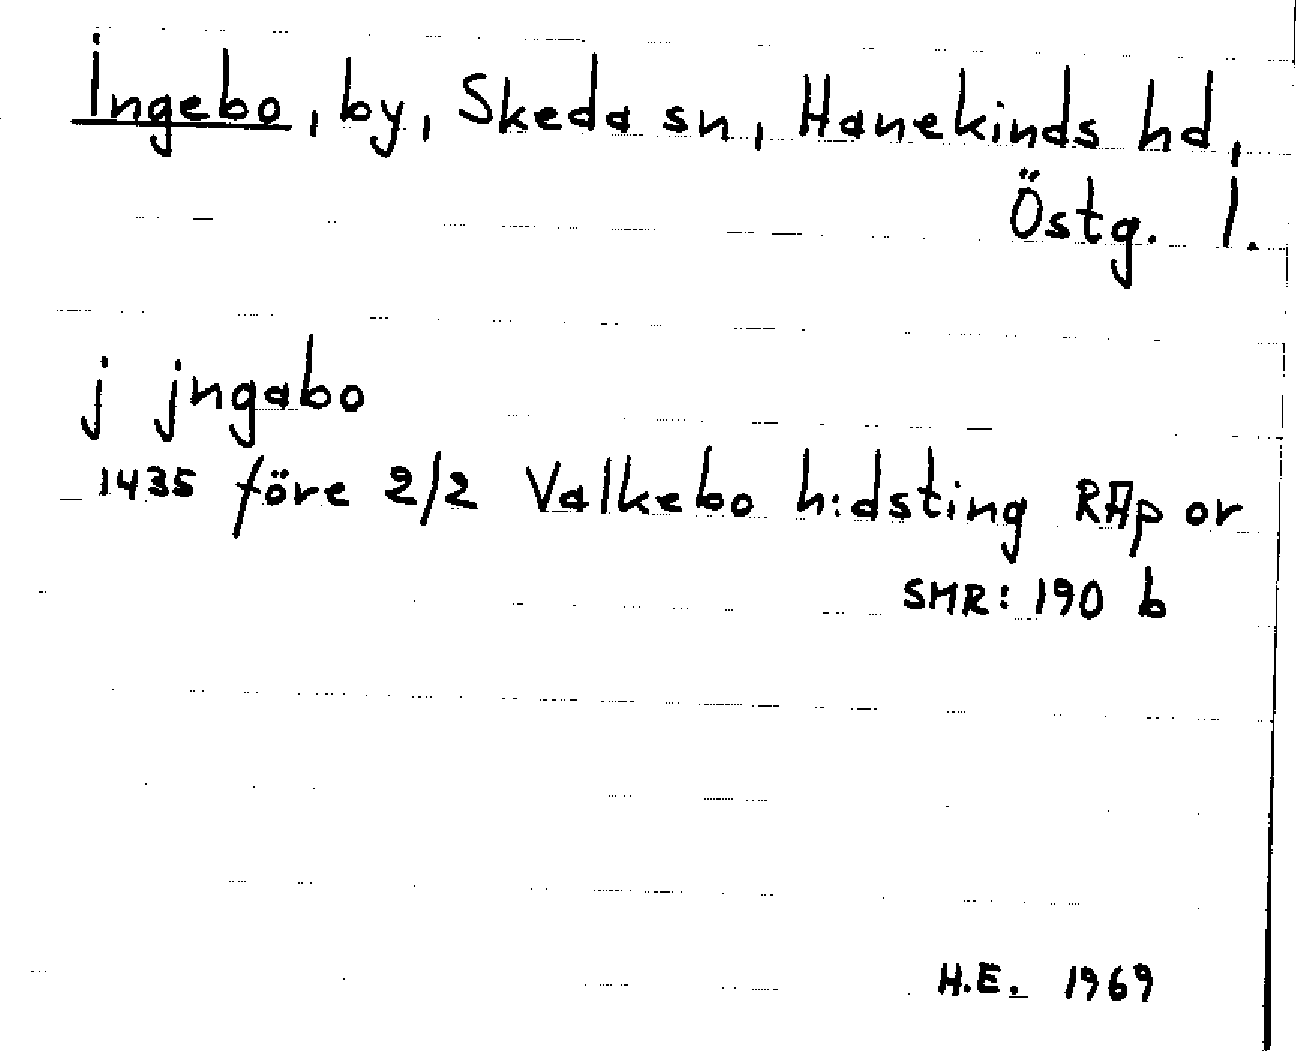 Ingebo, by, Skeda sn, Hanekinds hd,
Östg. l.
j jngabo
1435 före 2/2 Valkebo h:dsting RAp or
SMR: 190 b
H.E. 1969